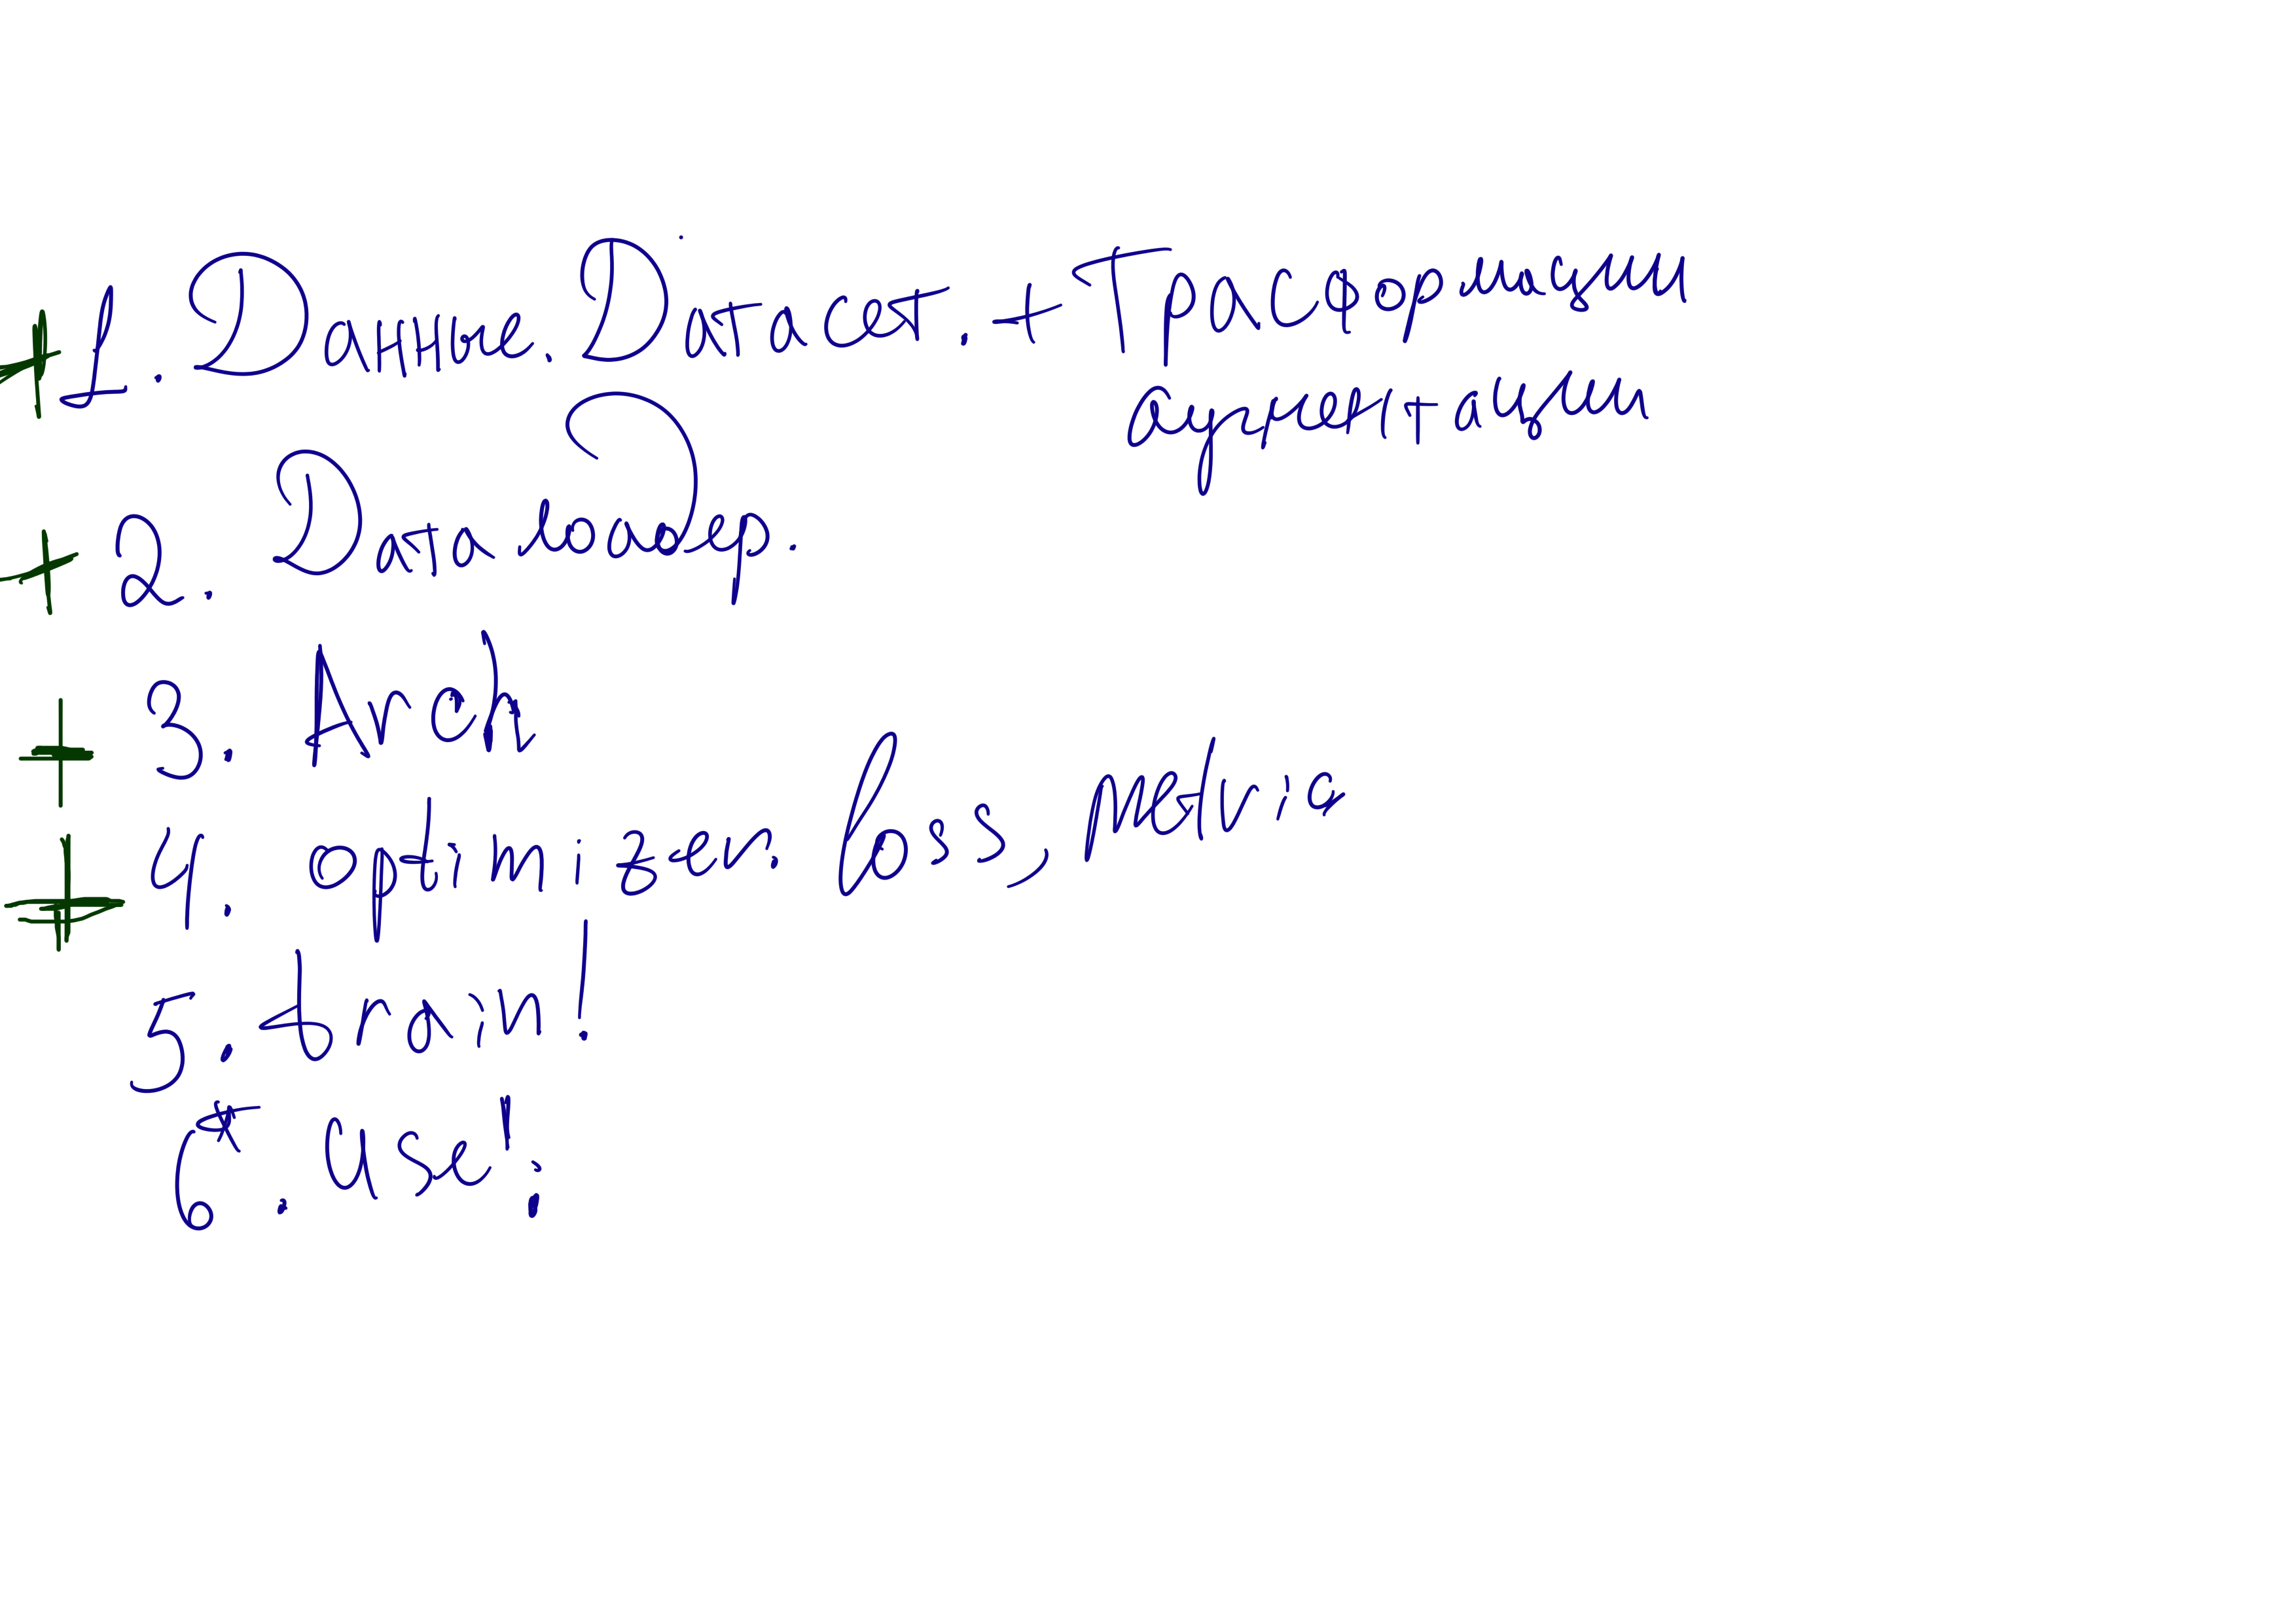 + 1. Данные. Датасет. + Трасформации
аугментации
+ 2. Data loader.
+ 3. Arch
+ 4. optimizer. loss, metric
5. train!
6*. use!